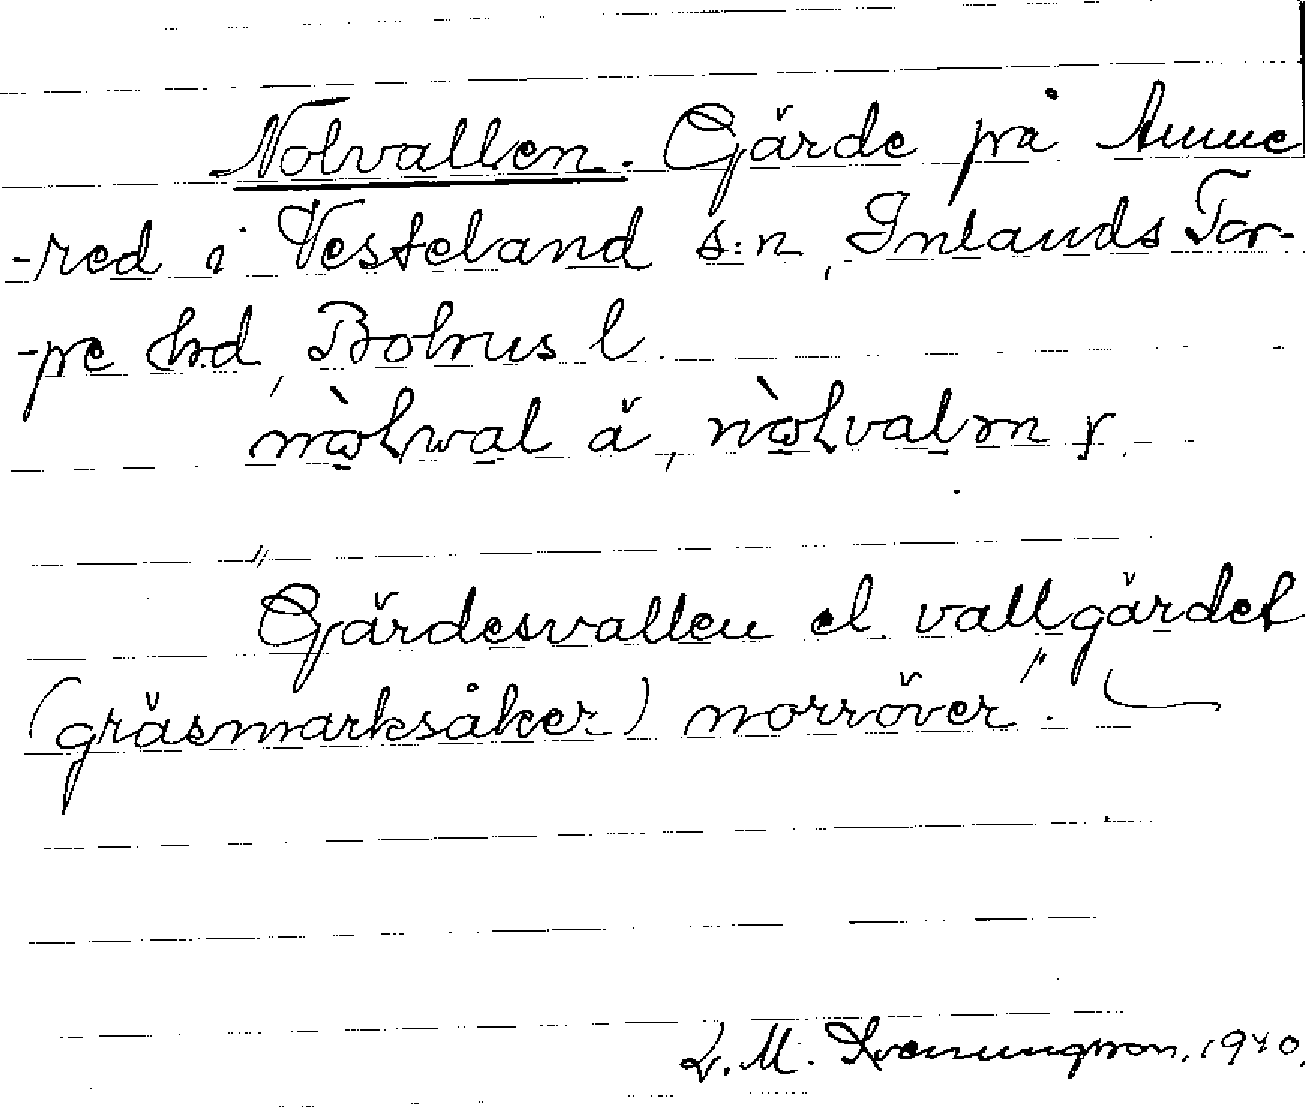 Nolvallen. Gärde på Anne
-red i Vesteland s:n, Inlands Tor-
-pe hd, Bohus l.
nòlwal ä, nòlvaln
"Gärdesvallen el. vallgärdet
(gräsmarksåker) norröver".
L. M. Svenungsson. 1940.